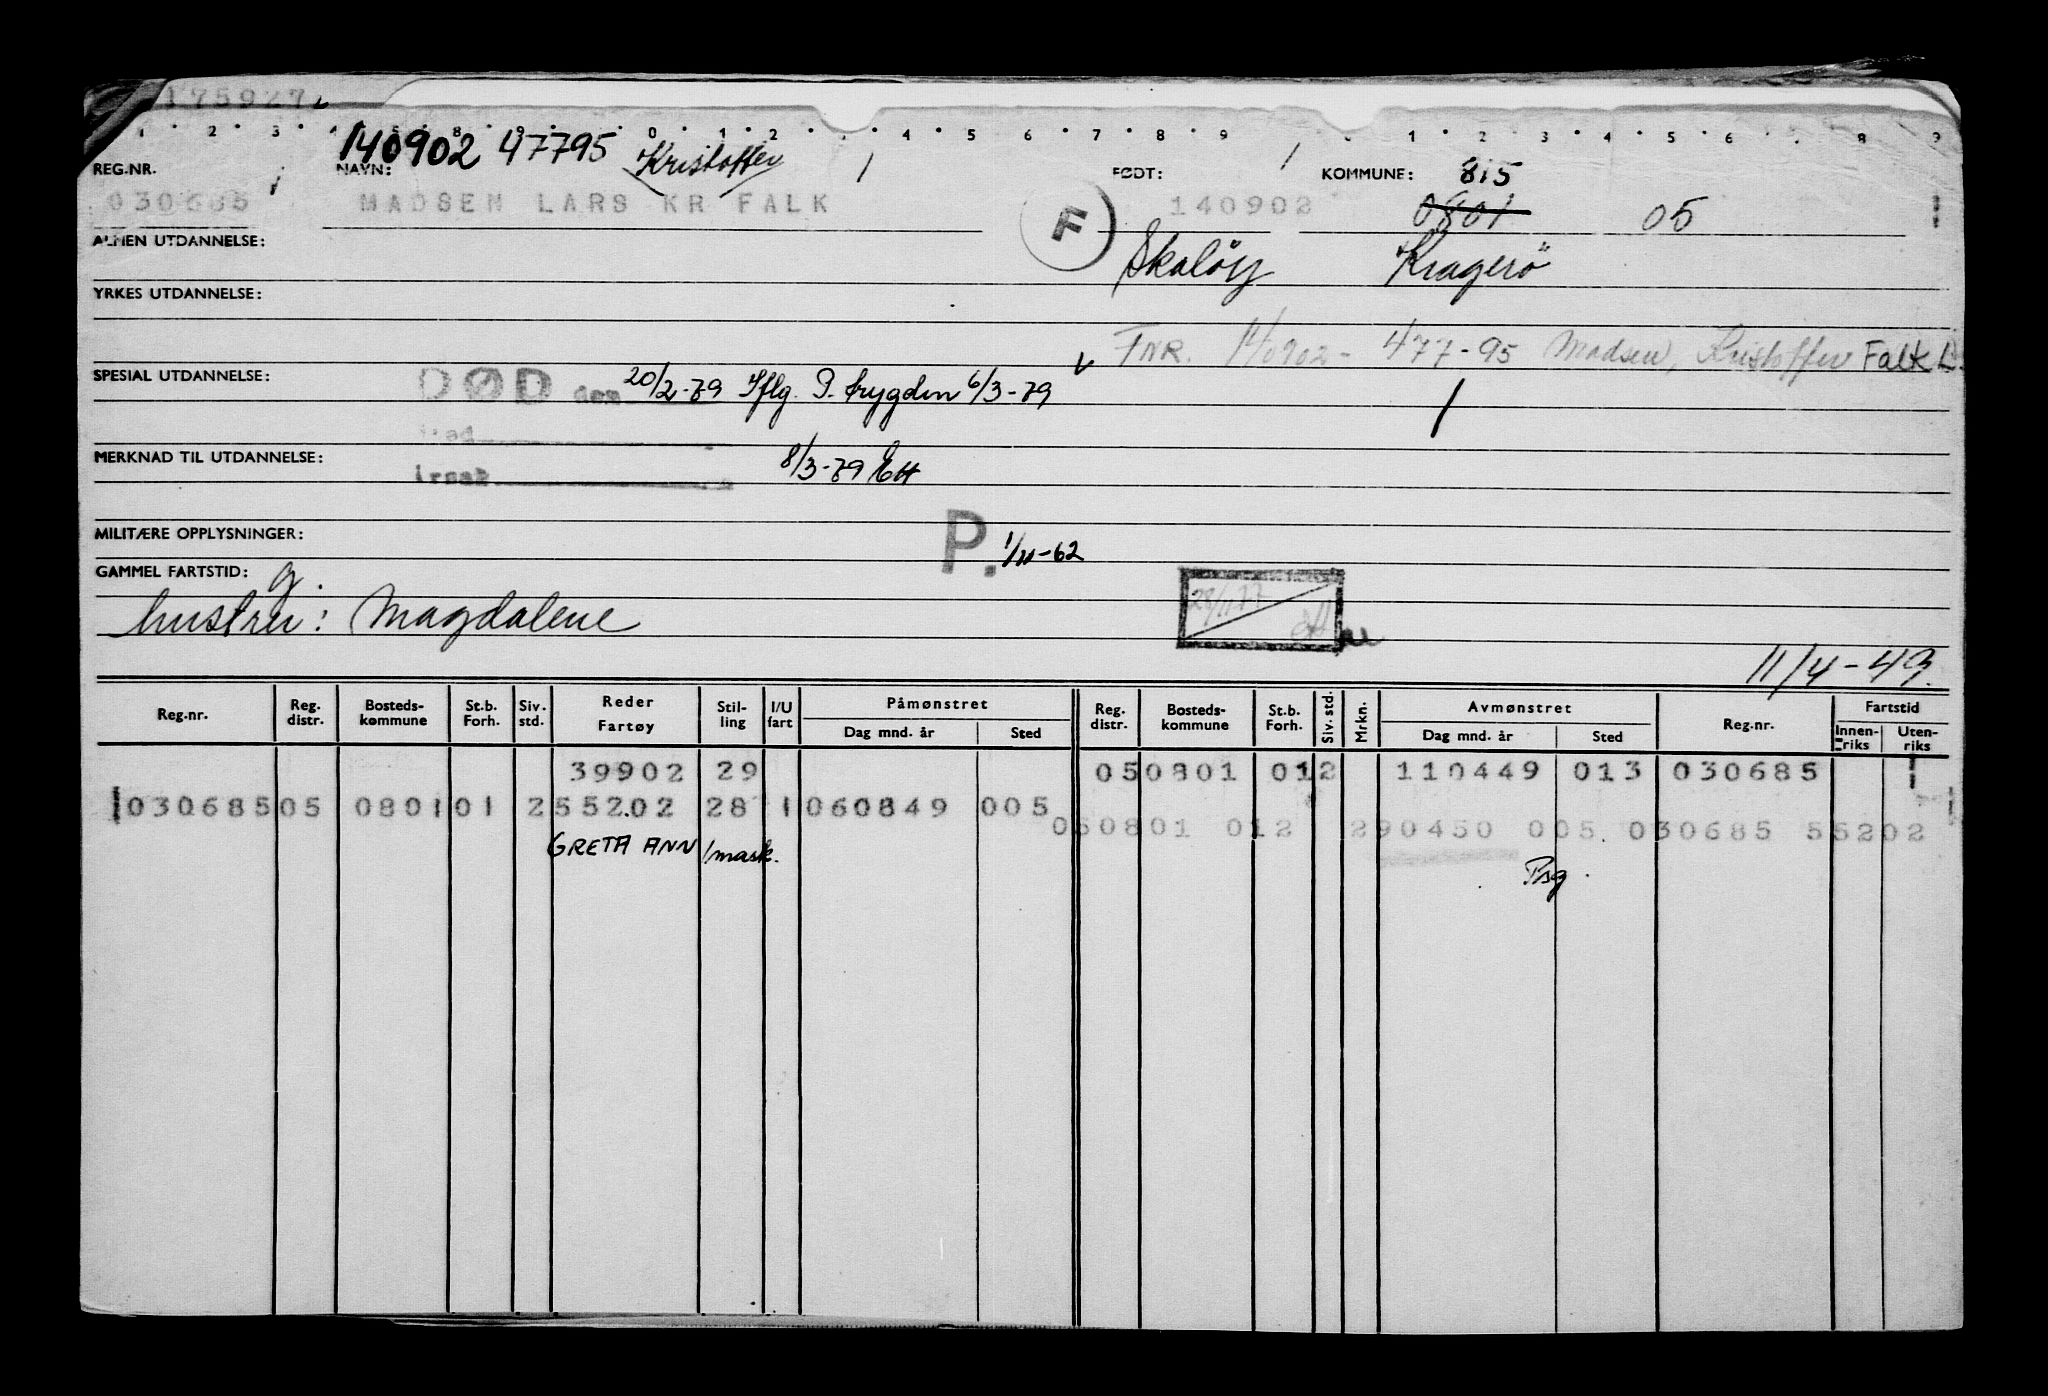 175927
1 2 3 4 5 8 9 0 1 2 4 5 6 7 8 9 1 2 3 4 5 6 7 8 9
140902 47795 Kristoffer
REG.NR. NAVN: FØDT: KOMMUNE: 815
030685 MADSEN LARS KR FALK F 140902 0801 05
ALMEN UTDANNELSE: Skaløy Kragerö
YRKES UTDANNELSE:
FNR. 140902-477-95 Madsen, Kristoffer Falk L.
SPESIAL UTDANNELSE: DØD den 20/2-79 Iflg. P. trygden 6/3-79
Sted
MERKNAD TIL UTDANNELSE: 8/3-79 EH
Årsak
MILITÆRE OPPLYSNINGER: P. 1/11-62
GAMMEL FARTSTID: g.
hustru: Magdalene 28/11 77
11/4-49.
Reg.nr. Reg. distr. Bosteds-kommune St.b. Forh. Siv. std. Reder Fartøy Stil-ling I/U fart Påmønstret Dag mnd. år Sted Reg. distr. Bosteds-kommune St.b. Forh. Siv. std. Mrkn. Avmønstret Dag mnd. år Sted Reg.nr. Fartstid Innen-riks Uten-riks
39902 29 050801 012 110449 013 030685
030685 05 0801 01 2 55202 28 1 060849 005
050801 012 290450 005 030685 55202
GRETA ANN 1mask. Psg.